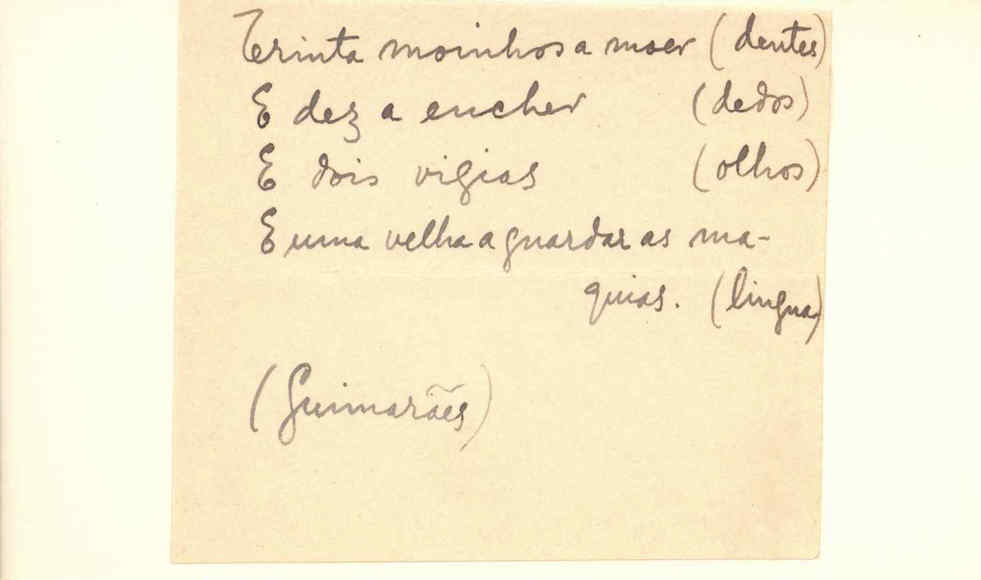 Terinta moinhos a moer (dentes)
E dez a encher (dedos)
E dois vigias (olhos)
E uma velha a guardar as ma-
quias. (lingua)
(Guimarães)